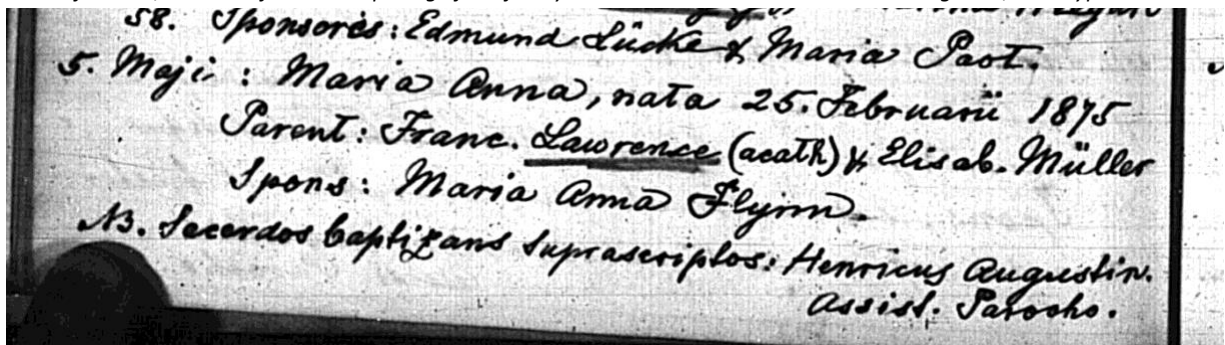 58. Sponsores: Edmund Lücke & Maria Paot.
5. Maji: Maria Anna, nata 25. Februarii 1875
Parent: Franc. Lawrence (acath) & Elisab. Müller
Spons: Maria Anna Flynn.
NB. Sacerdos baptizans suprascriptos: Henricus Augustin.
Assist. Parocho.